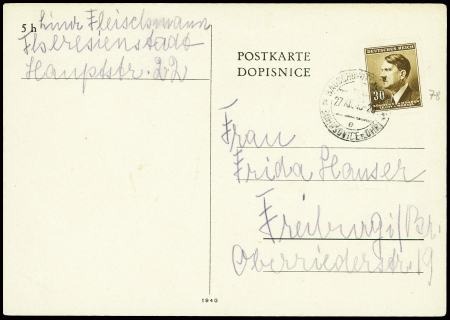 5 h
Lina Fleischmann
Theresienstadt
Hauptstr. 22
POSTKARTE
DOPISNICE
DEUTSCHES REICH
30
78
Frau
Frida Hauser
Freiburg i/Br.
Oberriederstr. 19
1940